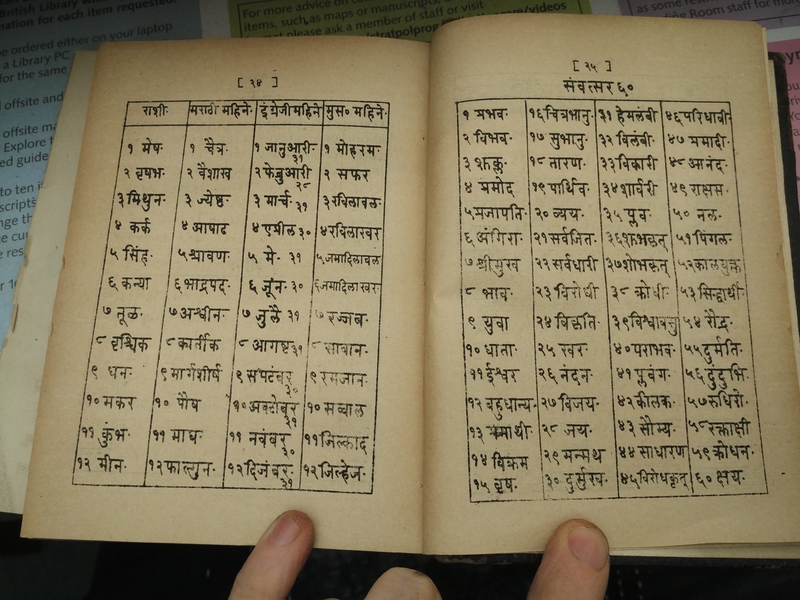 British Library
nation for each item requested.
For more advice on
items, such as maps or manuscripts,
please ask a member of staff or visit
ordered either on your laptop
a Library PC
for the same
offsite and
offsite ma
Explore t
ed guide
[ ३४ ]
राशी. मराठी महिने. इंग्रेजी महिने मुस॰ महिने.
१ मेष. १ चैत्र. १ जानुआरी ३१ १ मोहरम.
२ वृषभ. २ वैशाख २ फेब्रुआरी २८ २ सफर
३ मिथुन. ३ ज्येष्ठ. ३ मार्च. ३१ ३ रबिलावल.
४ कर्क ४ आषाढ ४ एप्रील ३० ४ रबिलाखर
५ सिंह. ५ श्रावण. ५ मे. ३१ ५ जमादिलावल
६ कन्या ६ भाद्रपद. ६ जून. ३० ६ जमादिलाखर.
७ तूळ. ७ अश्वीन. ७ जुलै ३१ ७ रज्जब.
८ वृश्चिक ८ कार्तीक ८ आगष्ट ३१ ८ साबान.
९ धन. ९ मार्गशीर्ष ९ सपटंबर ३० ९ रमजान.
१० मकर १० पौष १० अक्टोबर ३१ १० सव्वाल
११ कुंभ. ११ माघ. ११ नवंबर ३० ११ जिल्काद
१२ मीन. १२ फाल्गुन. १२ दिजंबर. ३१ १२ जिल्हेज.
[ ३५ ]
संवत्सर ६०
१ प्रभव. १६ चित्रभानु. ३१ हेमलंबी ४६ परिधावी
२ विभव. १७ सुभानु. ३२ विलंबी. ४७ प्रमादी.
३ शुक्ल १८ तारण. ३३ विकारी ४८ आनंद.
४ प्रमोद १९ पार्थिव. ३४ शार्वरी ४९ राक्षस.
५ प्रजापति. २० व्यय. ३५ प्लव. ५० नल.
६ अंगिरा. २१ सर्वजित. ३६ शुभकृत् ५१ पिंगल.
७ श्रीमुख २२ सर्वधारी ३७ शोभकृत् ५२ कालयुक्त
८ भाव. २३ विरोधी ३८ क्रोधी. ५३ सिद्धार्थी.
९ युवा २४ विकृति. ३९ विश्वावसु ५४ रौद्र.
१० धाता. २५ खर. ४० पराभव. ५५ दुर्मति.
११ ईश्वर २६ नंदन. ४१ प्लवंग. ५६ दुंदुभि.
१२ बहुधान्य. २७ विजय. ४२ कीलक. ५७ रुधिरो.
१३ प्रमाथी. २८ जय. ४३ सौम्य. ५८ रक्ताक्षी
१४ विक्रम २९ मन्मथ ४४ साधारण ५९ क्रोधन.
१५ वृष. ३० दुर्मुख. ४५ विरोधकृत् ६० क्षय.